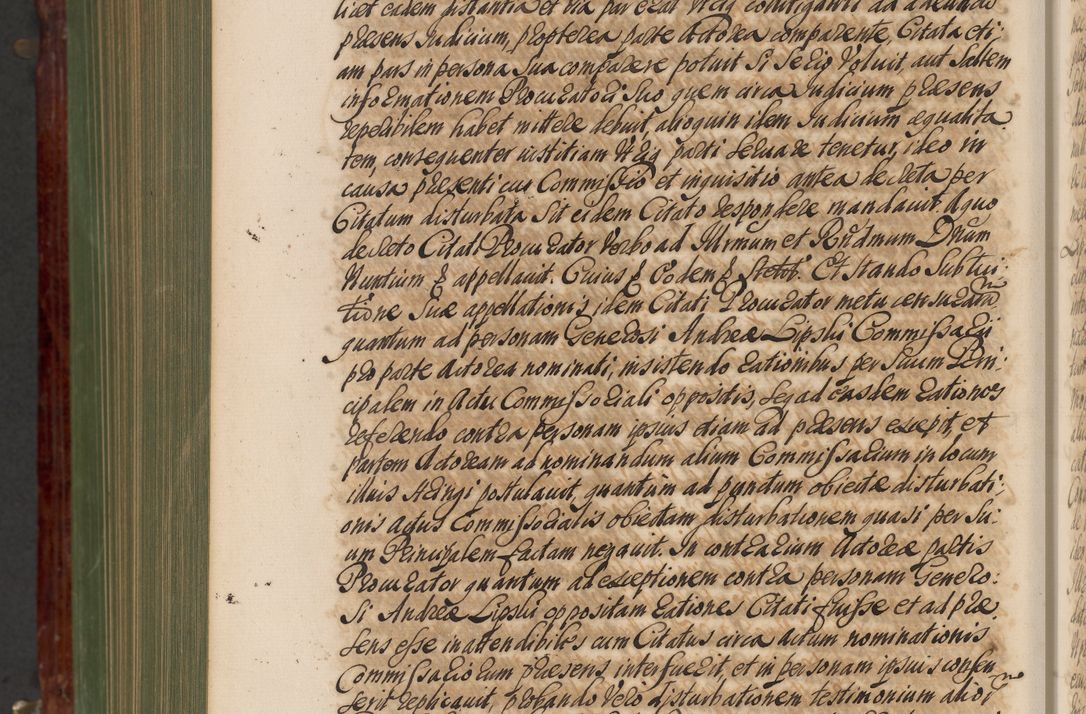 licet eadem distantia et via par erat utriq contiganti ad adeundo
præsens Judicium, propterea parte Actorea comparente, Citata eti,
am pars in persona sua comparere potuit si se eiq voluit, aut saltem
informationem Procuratori suo quem circa Judicium præsens
reperibilem habet mittere debuit, alioquin idem Judicium æqualita
tem, consequenter iustitiam utriq parti servare tenetur, ideo in
causa præsenti cus Commissio et inquisitio antea decreta per
Citatum disturbata sit eidem Citato respondere mandavit. A quo
decreto Citati Procurator verbo ad Illrmum et Rndmum Dnum
Nuntium appellavit. Cuius eodem stetit. Et stando sub tui,
tione suæ appellationis idem Citati Procurator metu censurarum
quantum ad personam Generosi Andreæ Lipski Commissarii
pro parte Actorea nominati, insistendo rationibus per suum Prin:
cipalem in Actu Commissoriali oppositis, se ad easdem rationes
referendo contra personam ipsius etiam ad præsens excepit, et
partem Actoream ad nominandum alium Commissarium in locum
illius stringi postulavit, quantum ad punctum obiectæ disturbati,
onis actus Commissorialis obiectam disturbationem quasi per su:
um Principalem factam negavit. In contrarium Actoreæ partis
Procurator quantum ad exceptionem contra personam Genero:
si Andreæ Lipski oppositam rationes Citati fuisse et ad præ
sens esse inattendibiles cum Citatus circa actum nominationis
Commissariorum præsens interfuerit, et in personam ipsius consen
serit replicavit, probando vero disturbationem testimonium alior